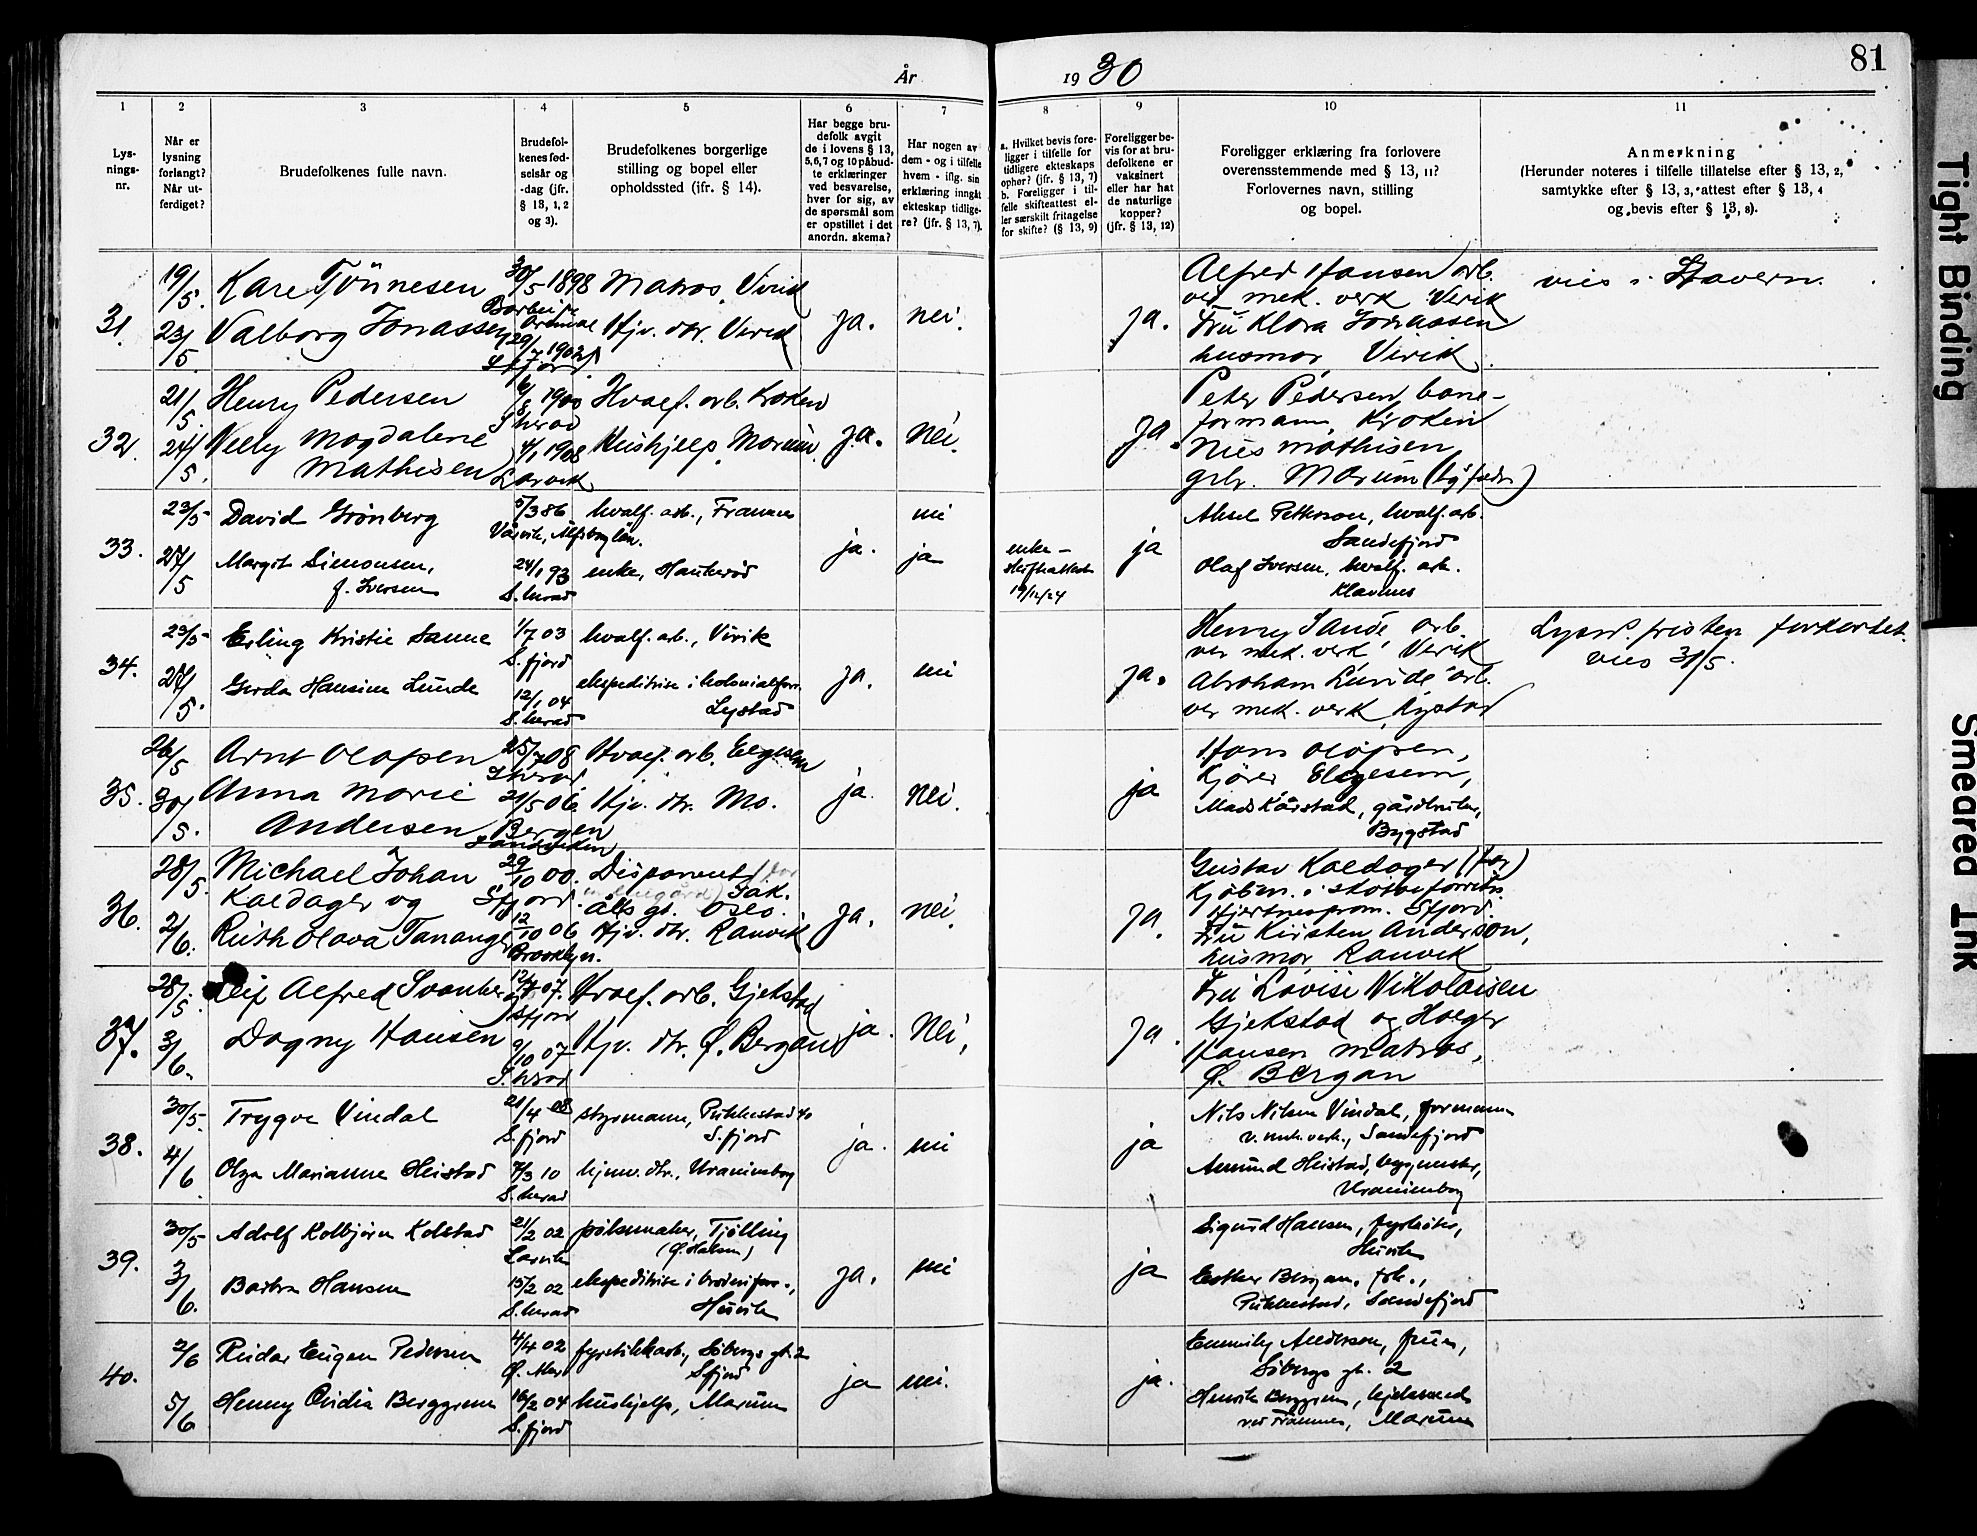 81
År 1930
1 2 3 4 5 6 7 8 9 10 11
Lysnings-nr.
Når er lysning forlangt? Når utferdiget?
Brudefolkenes fulle navn.
Brudefolkenes fødselsår og -dag (jfr. § 13, 1, 2 og 3).
Brudefolkenes borgerlige stilling og bopel eller opholdssted (jfr. § 14).
Har begge brudefolk avgit de i lovens § 13, 5, 6, 7 og 10 påbudte erklæringer ved besvarelse, hver for sig, av de spørsmål som er opstillet i det anordn. skema?
Har nogen av dem - og i tilfelle hvem - iflg. sin erklæring inngått ekteskap tidligere? (jfr. § 13, 7).
a. Hvilket bevis foreligger i tilfelle for tidligere ekteskaps ophør? (jfr. § 13, 7) b. Foreligger i tilfelle skifteattest eller særskilt fritagelse for skifte? (§ 13, 9)
Foreligger bevis for at brudefolkene er vaksinert eller har hat de naturlige kopper? (jfr. § 13, 12)
Foreligger erklæring fra forlovere overensstemmende med § 13, 11? Forlovernes navn, stilling og bopel.
Anmerkning (Herunder noteres i tilfelle tillatelse efter § 13, 2, samtykke efter § 13, 3, attest efter § 13, 4 og bevis efter § 13, 8).
31. 19/5. Kare Tönnesen 30/5 1898 Matros, Virik
23/5. Valborg Jonassen 29/7 1902 Hjv. dtr. Virik
Sfjord
ja. nei. ja.
Alfred Hansen arb.
ved mek. verk Virik
Fru Klara Jonassen
husmor, Virik
vies i Stavern.
32. 21/5. Henry Pedersen 1900 Hvalf. arb. Kroken
S herad
24/5. Nelly Magdalene Mathisen 4/1 1908 Hushjelp, Marum.
Larvik
ja. Nei. ja.
Peter Pedersen bane-
formann, Kroken
Nils Mathisen
grbr. Marum
33. 23/5 David Grønberg 5/3 86 hvalf. arb., Framnes
27/5 Margit Simonsen, f. Iversen 24/1 93 enke, Haukerød
S. herad
ja. nei ja
enke -
skifteattest
19/12/24
ja
Aksel Pettersen, hvalf. arb.
Sandefjord
Olaf Iversen, hvalf. arb.
Klavenes
34. 23/5 Erling Kristie Sanne 1/7 03 hvalf. arb., Virik
S. fjord
27/5. Gerda Hansine Lunde 12/1 04 ekspeditrise i kolonialforr.
S. herad Lystad
ja. nei ja.
Henry Sande, arb.
ved mek. verk, Virik
Abraham Lunde arb.
ved mek. verk,
Lysn. fristen forkortet.
vies 31/5.
35. 26/5 Arnt Olafsen 25/7 08 Hvalf. arb. Elgesem
S herad
30/5. Anna Marie Andersen 21/5 06 Hjv. dtr. Mo.
Bergen
ja. Nei. ja
Hans Olafsen,
Kjører Elgesem,
Mads Kårstad, gårdbruker,
Bygstad
36. 28/5. Michael Johan Kaldager og 29/10 00. Disponent
Sfjord.
2/6. Ruth Olava Tananger 12/10 06 Hjv. dtr. Ranvik
Brooklyn.
Oslo.
ja. nei. ja.
Gustav Kaldager (far)
Kjøbm. i skoforretn.
Hjertnesprom. Sfjord.
Fru Kirsten Anderson,
husmor, Ranvik
37. 28/5. Leif Alfred Svanberg 12/7 07. Hvalf. arb. Gjekstad
Sfjord
3/6. Dagny Hansen 9/10 07 Hjv. dtr. Ø. Bergan
S. herad
ja. Nei, ja.
Fru Lovise Nikolaisen
Gjekstad og Holger
Hansen matros,
Ø. Bergan
38. 30/5. Trygve Vindal 21/4 08 styrmann, Pukkestad 40
S. fjord S. fjord
4/6 Olga Marianne Heistad 7/3 10 hjemv. dtr., Uranienborg
S. herad
ja. nei ja
Nils Nilsen Vindal, formann
v. mek. verk., Sandefjord
Amund Heistad, byggmester,
Uranienborg
39. 30/5 Adolf Kolbjørn Kolstad 21/2 02 pølsemaker, Tjølling
Larvik
3/6. Barbra Hansen 15/2 02 ekspeditrise i brødforr.,
S. herad Husvik
ja. nei ja
Sigurd Hansen, fyrbøter,
Husvik
Esther Bergan, frk.,
Pukkestad, Sandefjord
40. 2/6 Reidar Eugen Pedersen 4/4 02 fyrstikkarb., Sibergs gt. 2
Sfjord
5/6 Henny Ovidia Berggren 16/2 04 hushjelp, Marum
S. fjord
ja nei. ja.
Emmily Andersen, frue,
Sibergs gt. 2
Henrik Berggren, kjelesmed
ved Framnes, Marum
Tight Binding
Smeared Ink